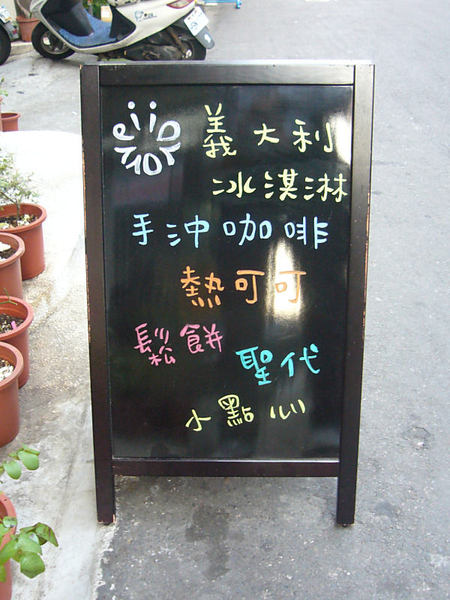 義大利
冰淇淋
手沖咖啡
熱可可
鬆餅
聖代
小點心